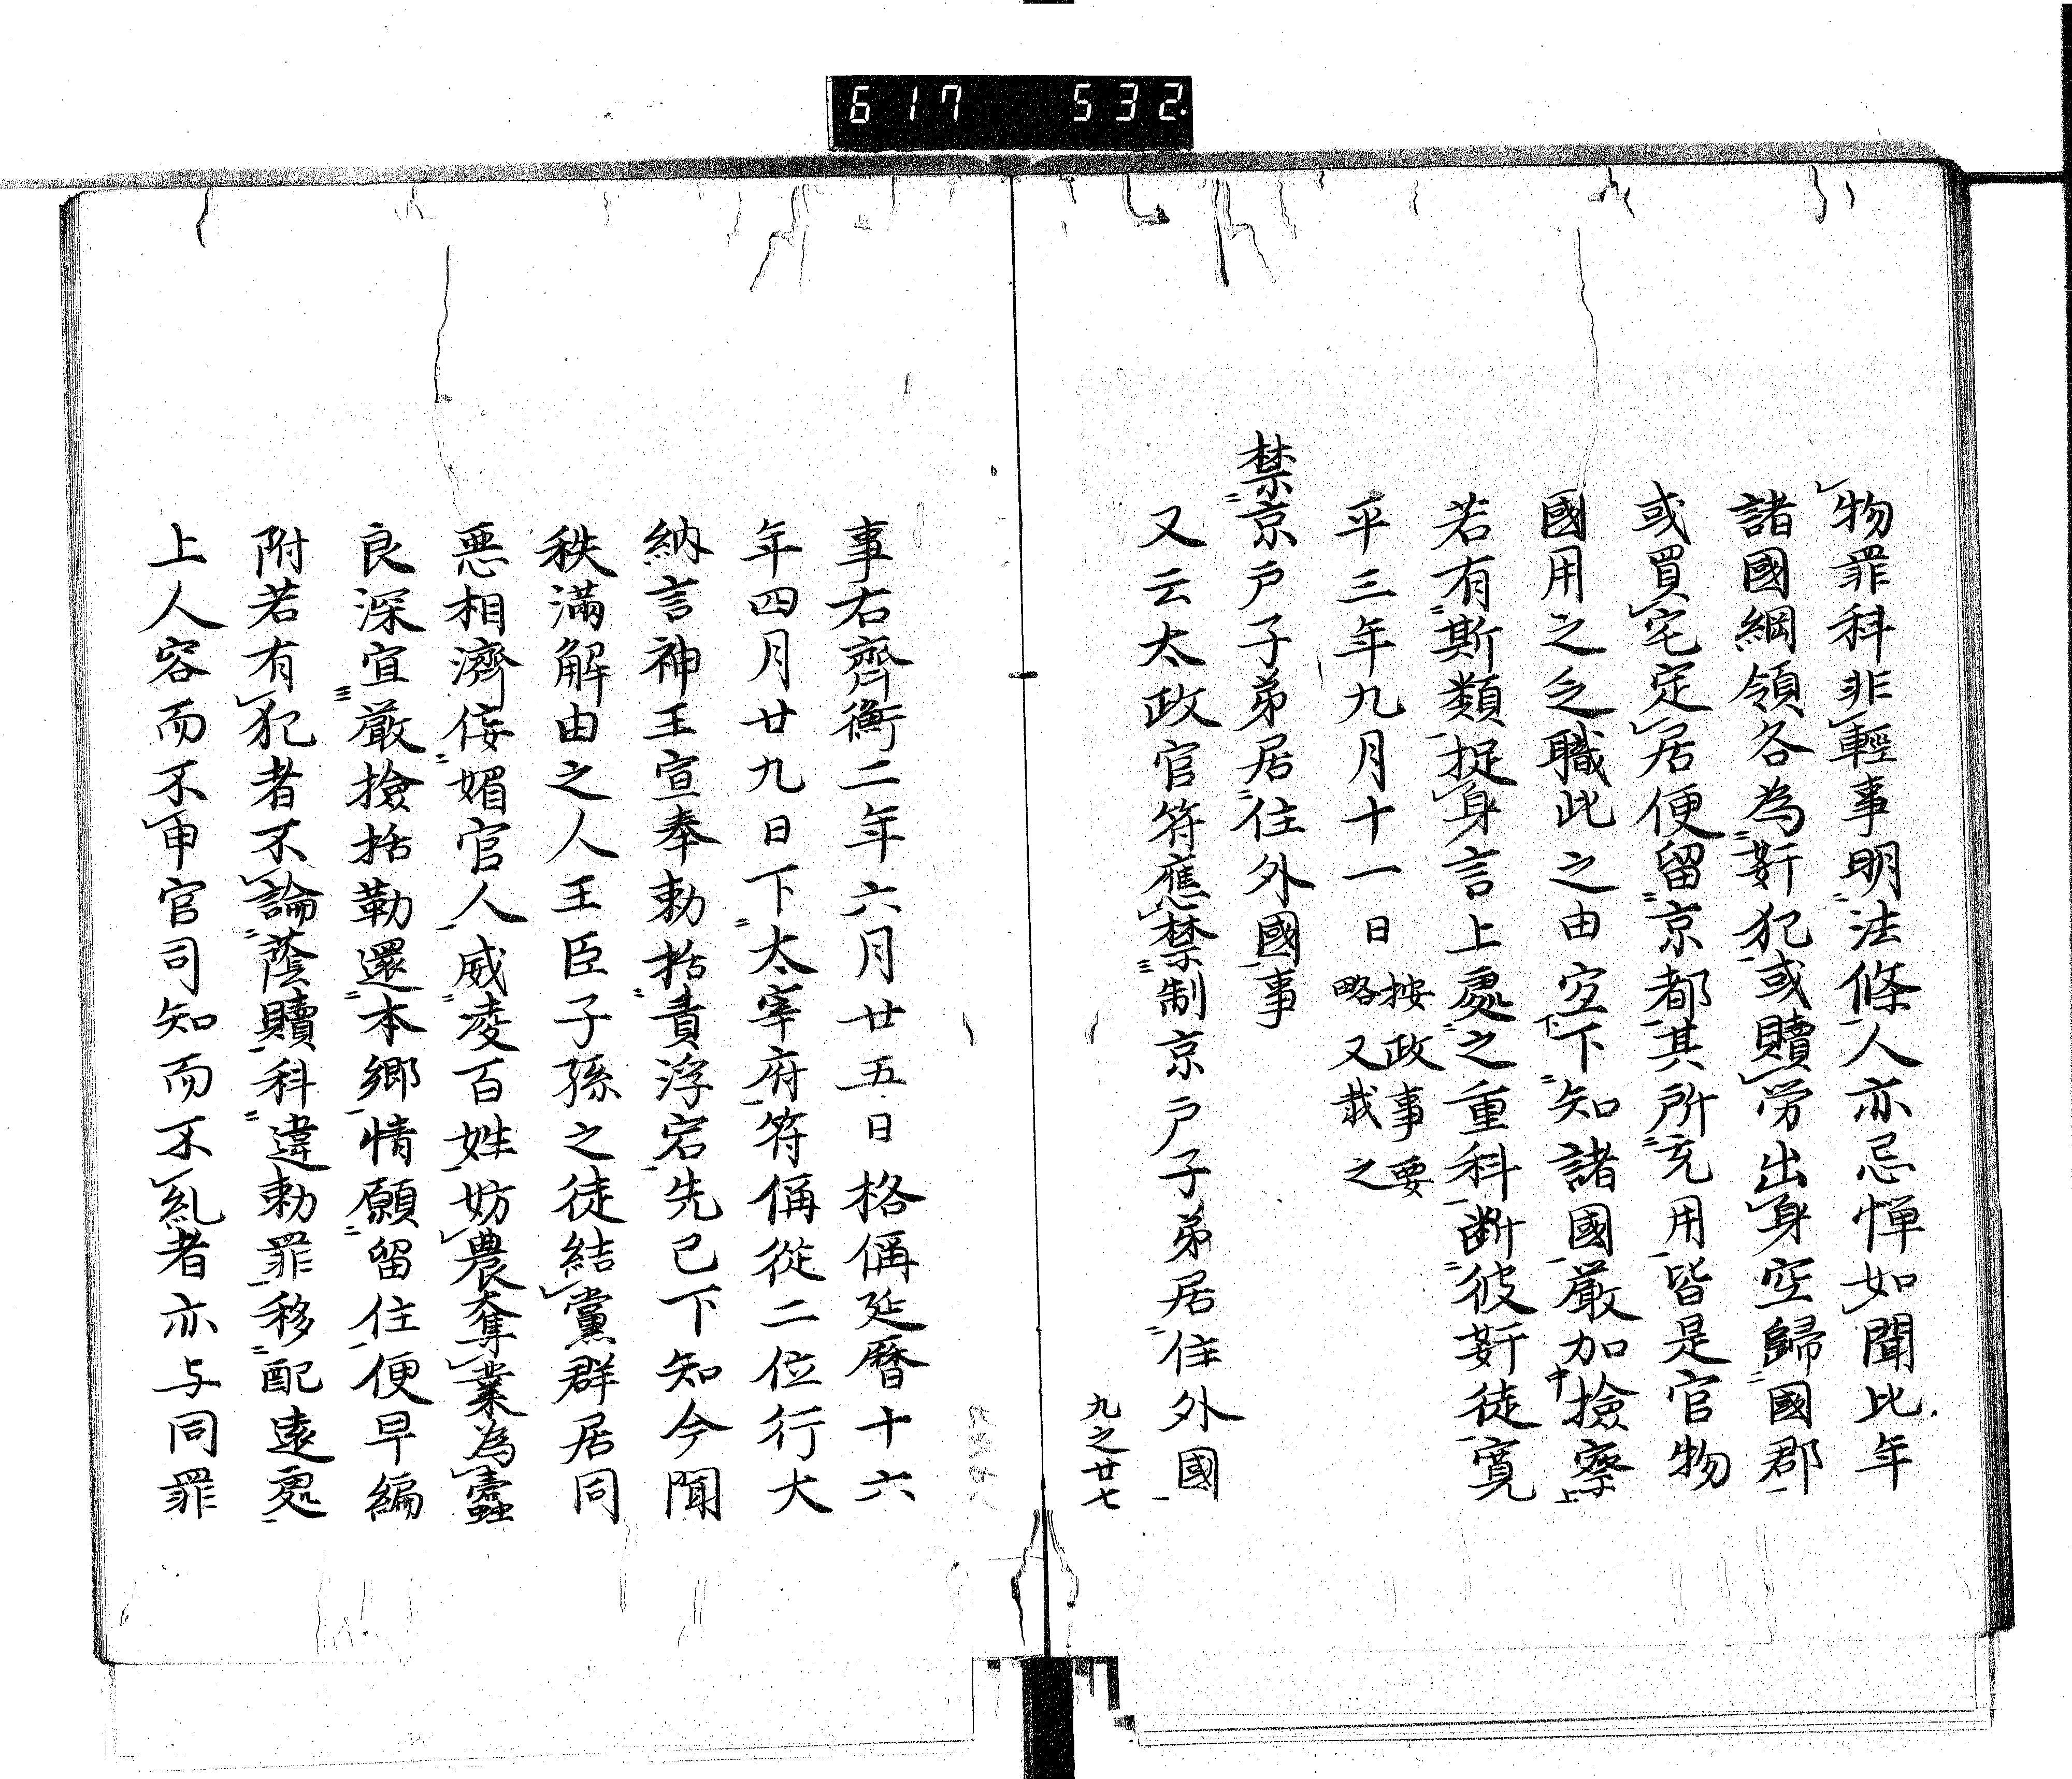 617 532
物罪科非輕事明法條人亦忌憚如聞比年
諸國綱領各為姧犯或贖労出身空歸國郡
或買宅定居便留京都其所充用皆是官物
國用之乏職此之由宜下知諸國嚴加撿察
若有斯類捉身言上處之重科断彼姧徒寛
平三年九月十一日 按政事要略又載之
禁京戸子弟居住外國事
又云太政官符應禁制京戸子弟居住外國
九之廿七
事右齊衡二年六月廿五日格偁延暦十六
年四月廿九日下太宰府符偁從二位行大
納言神王宣奉勅括責浮宕先已下知今聞
秩滿解由之人王臣子孫之徒結黨群居同
惡相濟侫媚官人威凌百姓妨農奪業為蠹
良深宜嚴撿括勒還本郷情願留住便早編
附若有犯者不論蔭贖科違勅罪移配遠處
上人容而不申官司知而不糺者亦与同罪